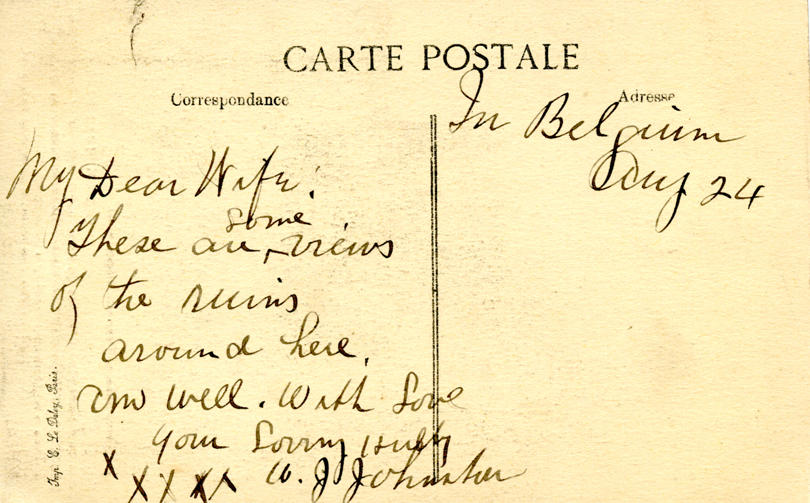 CARTE POSTALE
Correspondance
Adresse
In Belgium
Aug 24
My Dear Wife:
These are some views
of the ruins
around here.
am well. With Love
Your Loving Hubby
W. J. Johnston
x x x x x
Imp. E. Le Deley, Paris.